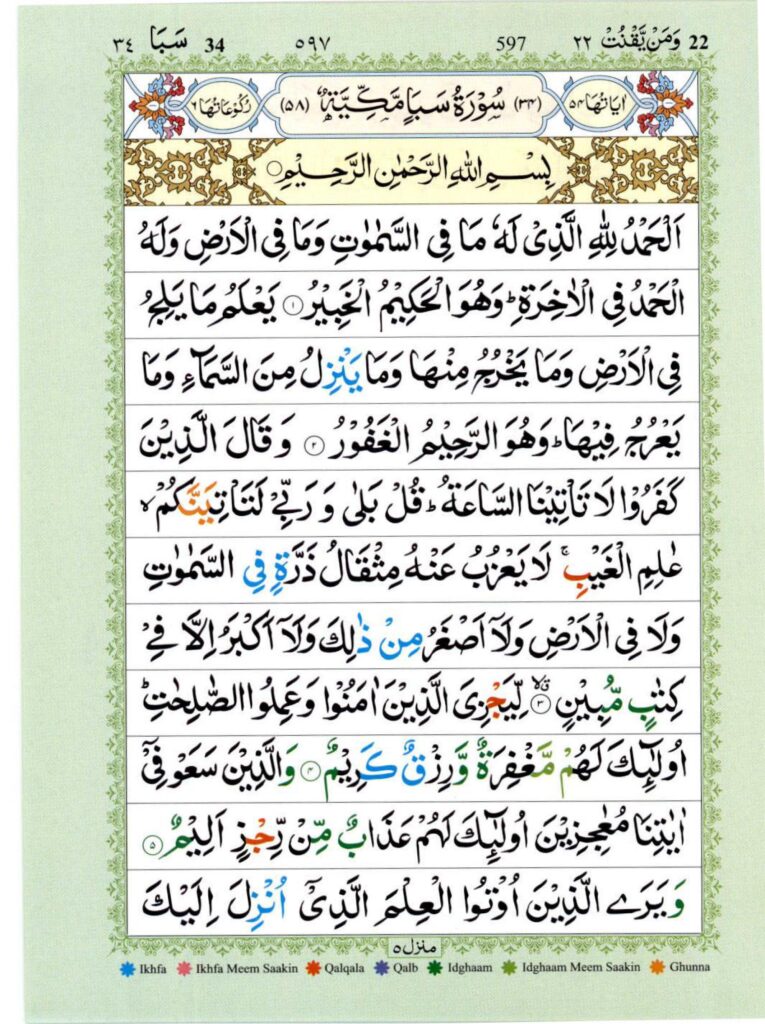 22 وَمَنْ يَّقْنُتْ ٢٢ 597 ٥٩٧ 34 سَبَا ٣٤
اٰیَاتُهَا ٥٤ (٣٤) سُوْرَةُ سَبَاٍ مَّكِّيَّةٌ (٥٨) رُكُوْعَاتُهَا ٦
بِسْمِ اللّٰهِ الرَّحْمٰنِ الرَّحِيْمِ
اَلْحَمْدُ لِلّٰهِ الَّذِیْ لَهٗ مَا فِی السَّمٰوٰتِ وَمَا فِی الْاَرْضِ وَلَهُ
الْحَمْدُ فِی الْاٰخِرَةِ ؕ وَهُوَ الْحَكِيْمُ الْخَبِيْرُ ١ يَعْلَمُ مَا يَلِجُ
فِی الْاَرْضِ وَمَا يَخْرُجُ مِنْهَا وَمَا يَنْزِلُ مِنَ السَّمَآءِ وَمَا
يَعْرُجُ فِيْهَا ؕ وَهُوَ الرَّحِيْمُ الْغَفُوْرُ ٢ وَقَالَ الَّذِيْنَ
كَفَرُوْا لَا تَاْتِيْنَا السَّاعَةُ ؕ قُلْ بَلٰی وَرَبِّیْ لَتَاْتِيَنَّكُمْ ۙ
عٰلِمِ الْغَيْبِ ۚ لَا يَعْزُبُ عَنْهُ مِثْقَالُ ذَرَّةٍ فِی السَّمٰوٰتِ
وَلَا فِی الْاَرْضِ وَلَاۤ اَصْغَرُ مِنْ ذٰلِكَ وَلَاۤ اَكْبَرُ اِلَّا فِیْ
كِتٰبٍ مُّبِيْنٍ ٣ لِّيَجْزِیَ الَّذِيْنَ اٰمَنُوْا وَعَمِلُوا الصّٰلِحٰتِ ؕ
اُولٰٓئِكَ لَهُمْ مَّغْفِرَةٌ وَّرِزْقٌ كَرِيْمٌ ٤ وَالَّذِيْنَ سَعَوْ فِیْۤ
اٰيٰتِنَا مُعٰجِزِيْنَ اُولٰٓئِكَ لَهُمْ عَذَابٌ مِّنْ رِّجْزٍ اَلِيْمٌ ٥
وَيَرَی الَّذِيْنَ اُوْتُوا الْعِلْمَ الَّذِیْۤ اُنْزِلَ اِلَيْكَ
منزل ٥
Ikhfa Ikhfa Meem Saakin Qalqala Qalb Idghaam Idghaam Meem Saakin Ghunna